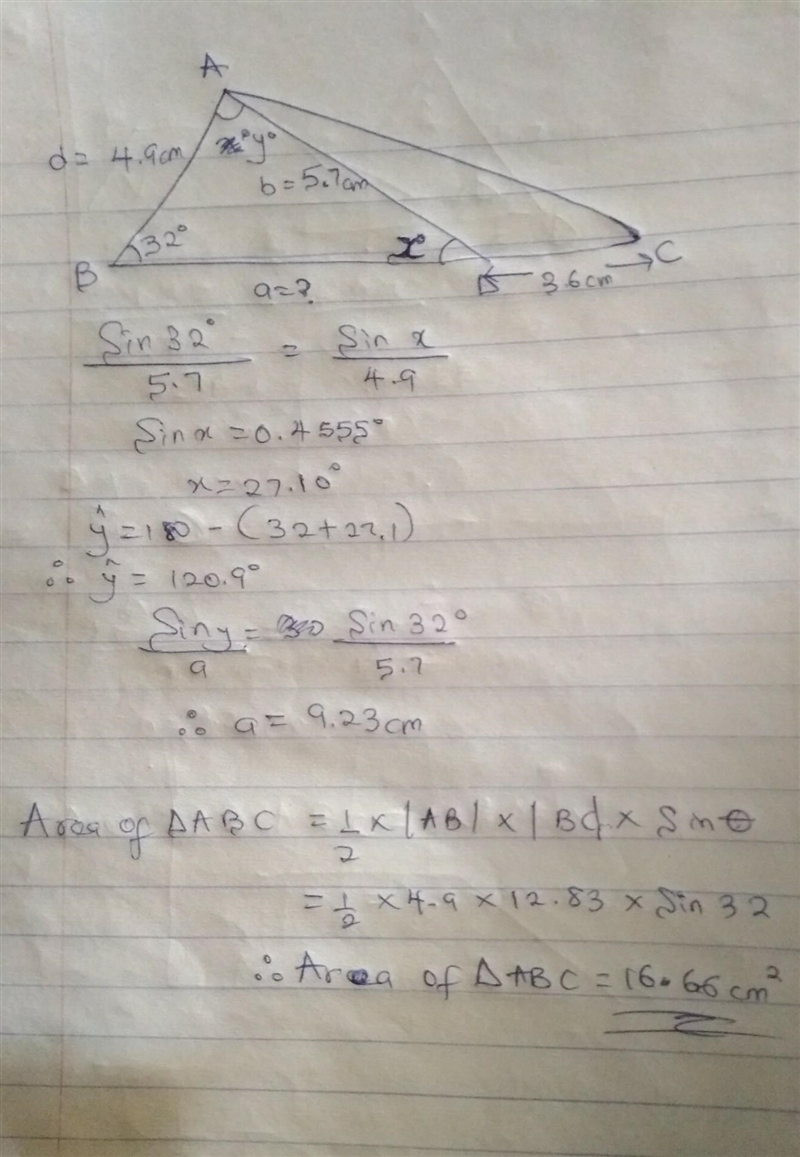 A
d = 4.9cm
y°
b = 5.7cm
32°
x°
B
D
3.6cm
C
a = ?
Sin 32° / 5.7 = Sin x / 4.9
Sin x = 0.4555°
x = 27.10°
ŷ = 180 - (32 + 27.1)
∴ ŷ = 120.9°
Sin y / a = Sin 32° / 5.7
∴ a = 9.23cm
Area of ΔABC = 1/2 × |AB| × |BC| × Sin θ
= 1/2 × 4.9 × 12.83 × Sin 32
∴ Area of ΔABC = 16.66 cm²